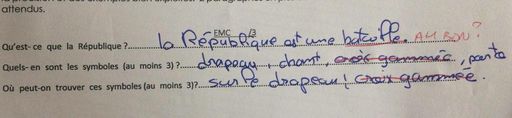 attendus.
EMC /3
Qu'est- ce que la République ? la République est une bataille. AH BON ?
Quels- en sont les symboles (au moins 3) ? drapeau, chant, croix gammée,
Où peut-on trouver ces symboles (au moins 3)? sur le drapeau! Croix gammée.